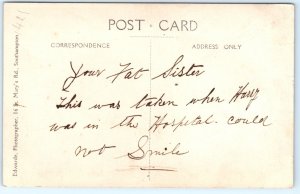 POST CARD
CORRESPONDENCE
ADDRESS ONLY
Your Fat Sister
This was taken when Harry
was in the Hospital. could
not Smile
Edwards, Photographer, St. Mary's Rd., Southampton